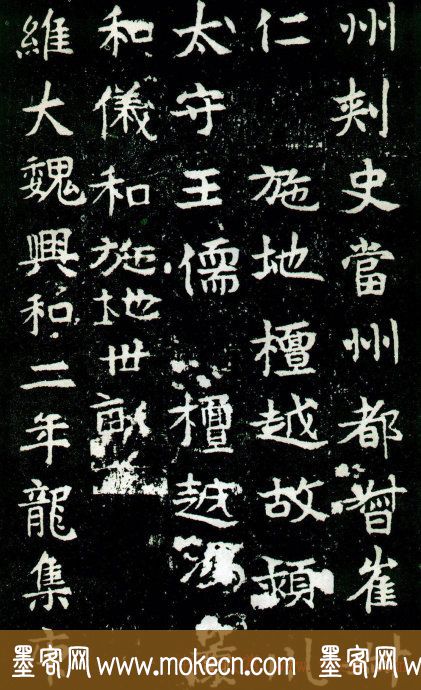 州刾史當州都督崔
仁 施地檀越故頓
太守王儒 檀越
和儀和施地世
維大魏興和二年龍集
墨客网 www.mokecn.com 墨客网